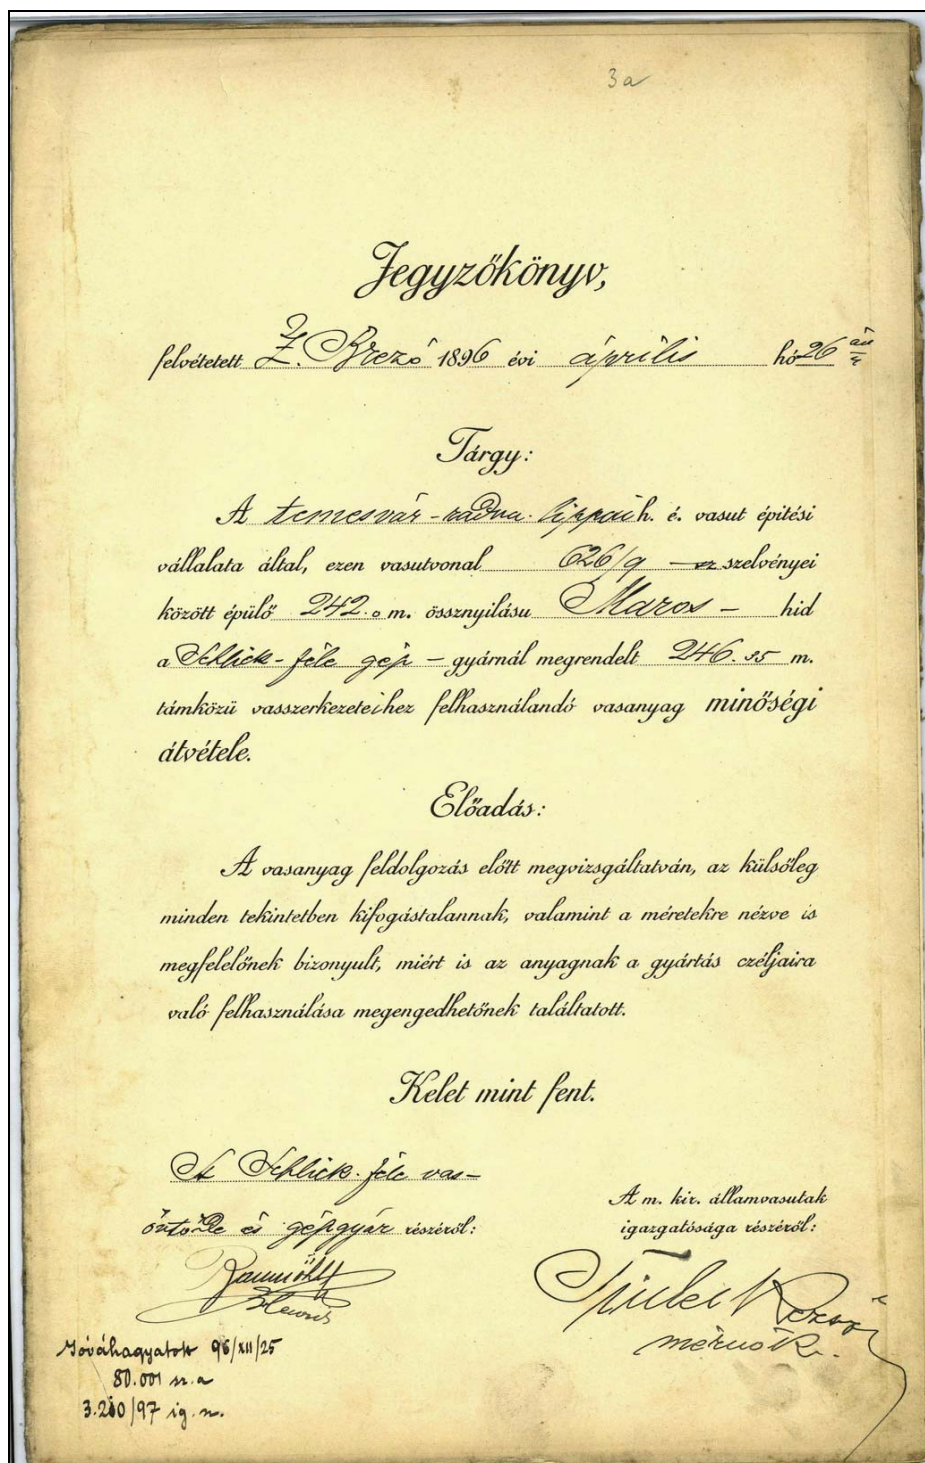 3a
Jegyzőkönyv,
felvétetett Z. Brezó 1896 évi április hó 26 án
Tárgy:
A temesvár-radna-lippai h. é. vasut épitési
vállalata által, ezen vasutvonal 626/9 szelvényei
között épülő 242.0 m. össznyilásu Maros - hid
a Schlick-féle gép - gyárnál megrendelt 246.35 m.
támközü vasszerkezeteihez felhasználandó vasanyag minőségi
átvétele.
Előadás:
A vasanyag feldolgozás előtt megvizsgáltatván, az külsőleg
minden tekintetben kifogástalannak, valamint a méretekre nézve is
megfelelőnek bizonyult, miért is az anyagnak a gyártás czéljaira
való felhasználása megengedhetőnek találtatott.
Kelet mint fent.
A Schlick-féle vas-
öntöde és gépgyár részéről:
A m. kir. államvasutak
igazgatósága részéről:
Rezső
mérnök.
Jóváhagyatott 96/XII/25
80.001 sz. a
3.210/97 ig. n.